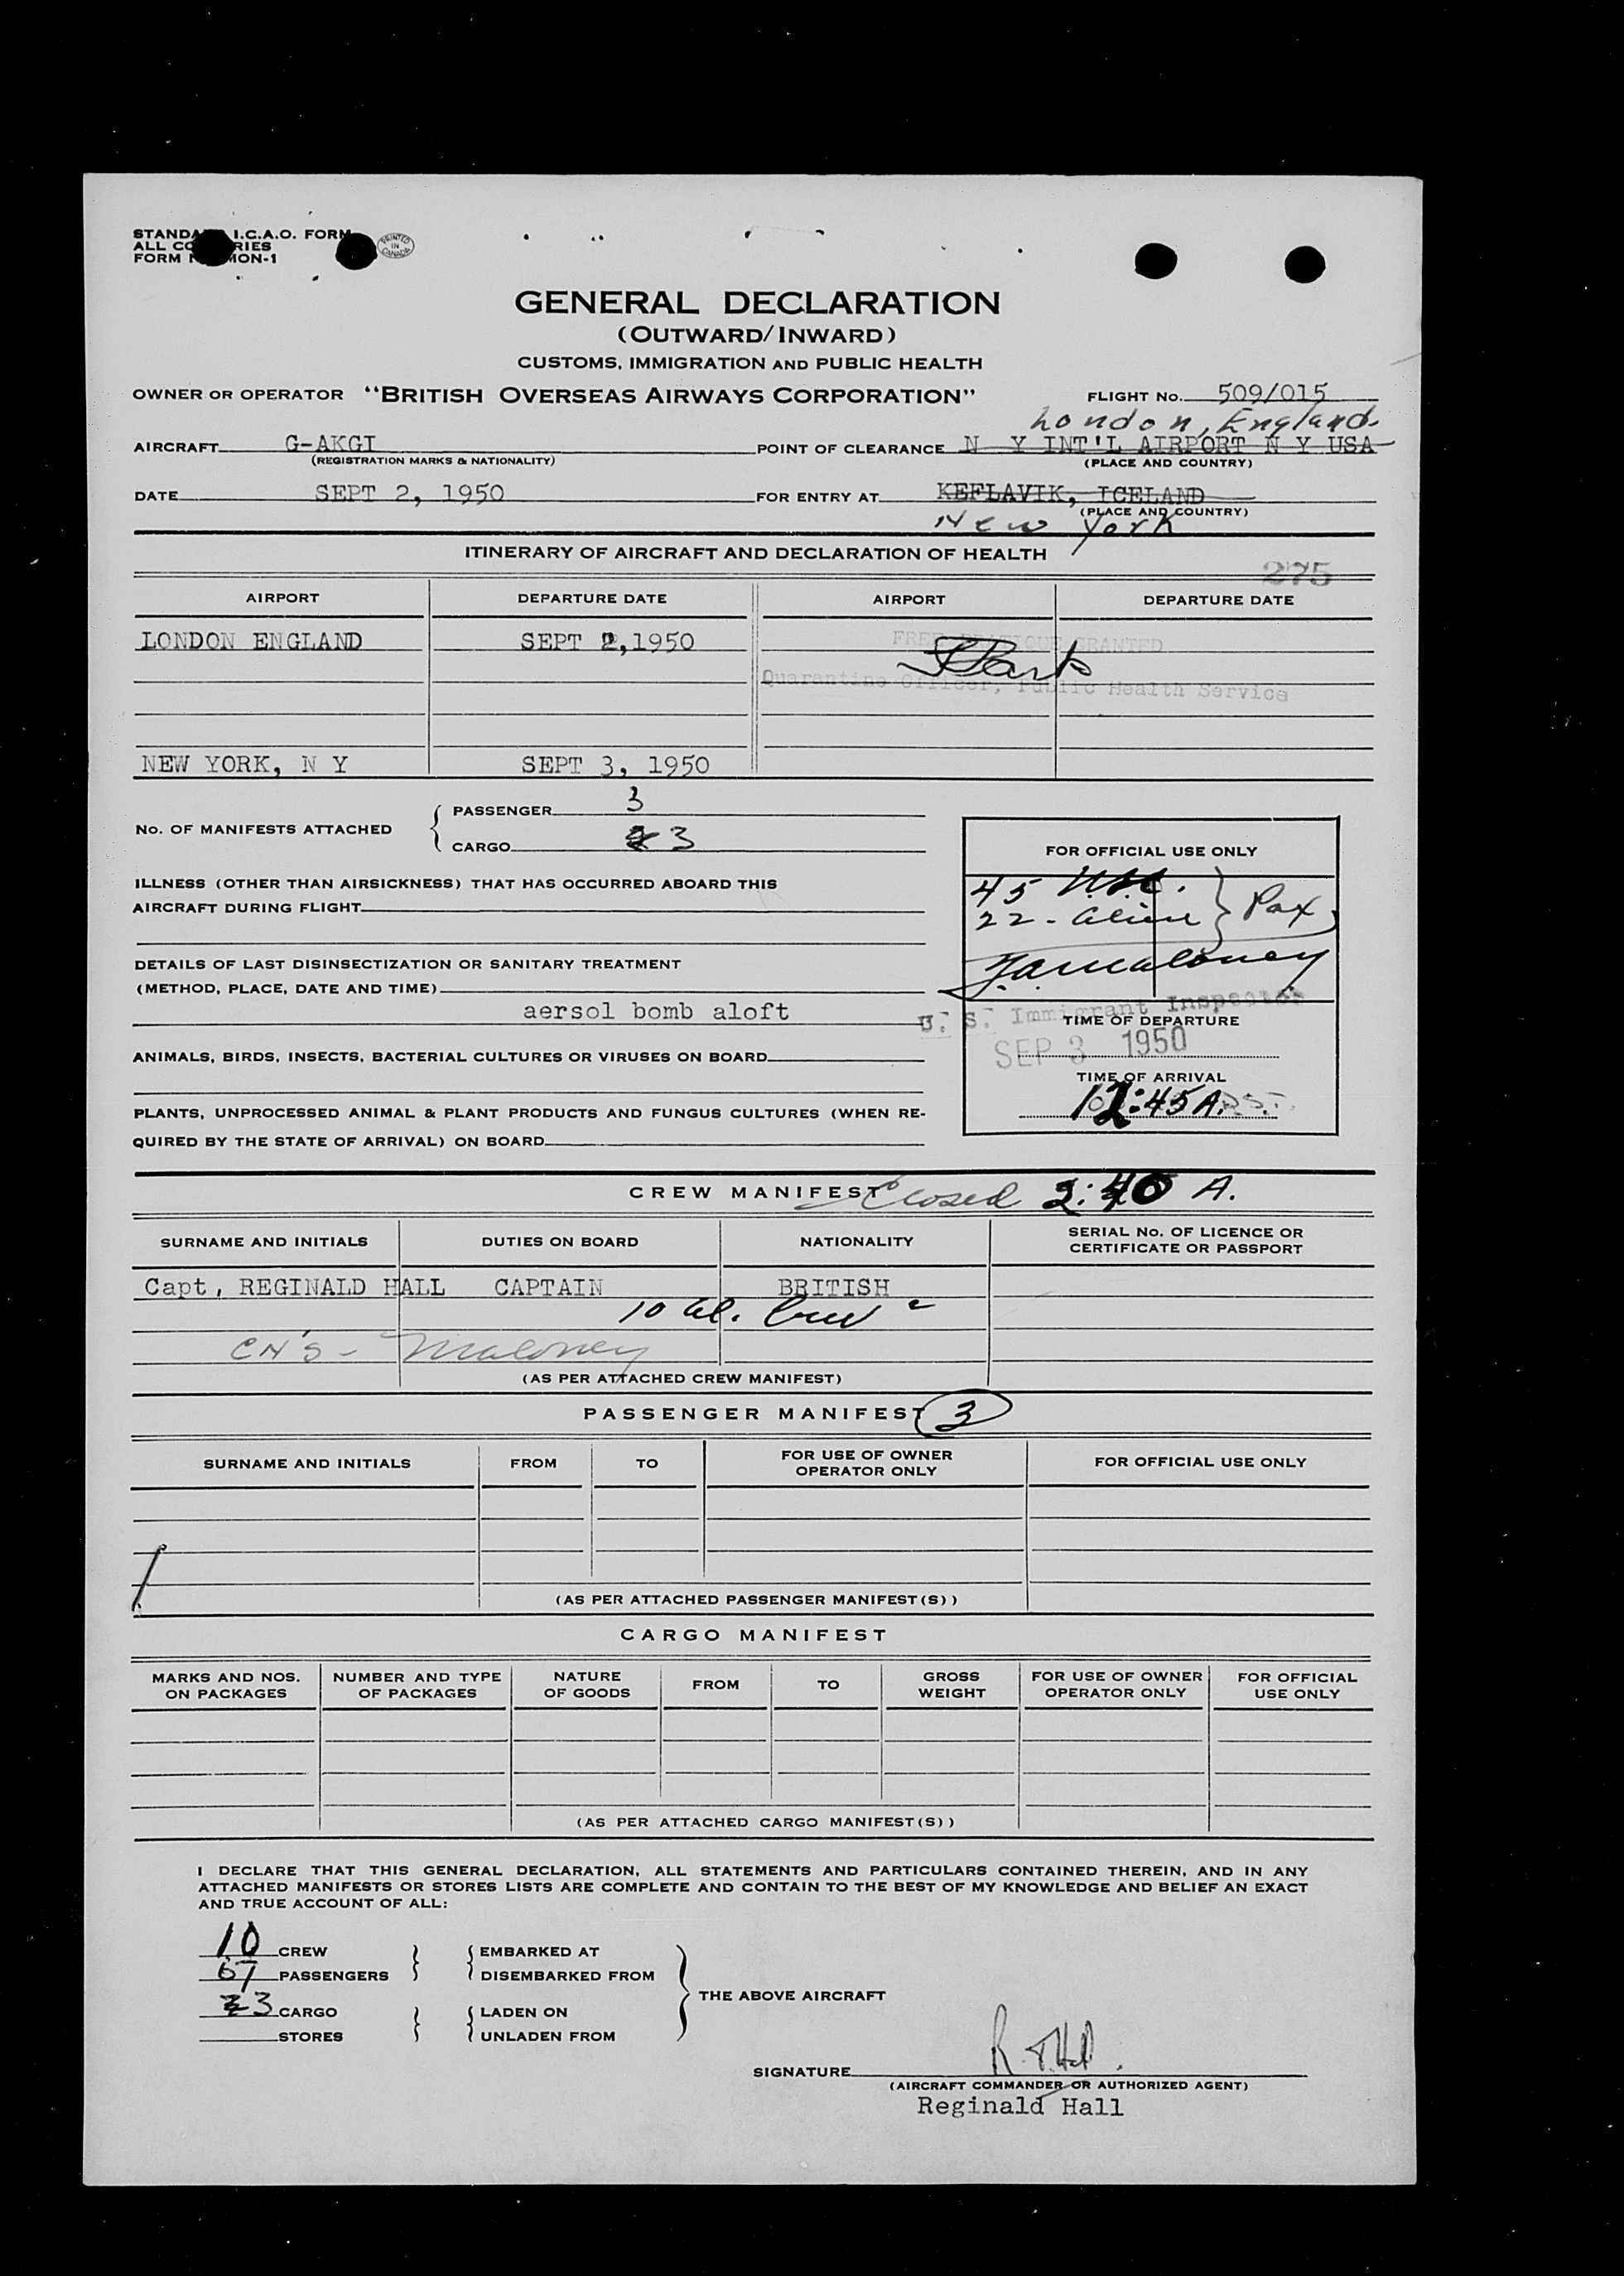 STANDA I.C.A.O. FORM
ALL CO RIES
FORM MON-1
PRINTED IN CANADA
GENERAL DECLARATION
(OUTWARD/INWARD)
CUSTOMS, IMMIGRATION AND PUBLIC HEALTH
OWNER OR OPERATOR "BRITISH OVERSEAS AIRWAYS CORPORATION" FLIGHT No. 509/015
London, England.
AIRCRAFT G-AKGI POINT OF CLEARANCE N Y INT'L AIRPORT N Y USA
(REGISTRATION MARKS & NATIONALITY) (PLACE AND COUNTRY)
DATE SEPT 2, 1950 FOR ENTRY AT KEFLAVIK, ICELAND
(PLACE AND COUNTRY)
New York
ITINERARY OF AIRCRAFT AND DECLARATION OF HEALTH
275
AIRPORT DEPARTURE DATE AIRPORT DEPARTURE DATE
LONDON ENGLAND SEPT 2,1950 FREE PRATIQUE GRANTED
Quarantine Officer, Public Health Service
NEW YORK, N Y SEPT 3, 1950
No. OF MANIFESTS ATTACHED
PASSENGER 3
CARGO 3
FOR OFFICIAL USE ONLY
45 U.S.C.
22 - alien } Pax
F.A. Maloney
U. S. Immigrant Inspector
TIME OF DEPARTURE
SEP 3 1950
TIME OF ARRIVAL
12:45 A.
ILLNESS (OTHER THAN AIRSICKNESS) THAT HAS OCCURRED ABOARD THIS
AIRCRAFT DURING FLIGHT
DETAILS OF LAST DISINSECTIZATION OR SANITARY TREATMENT
(METHOD, PLACE, DATE AND TIME)
aersol bomb aloft
ANIMALS, BIRDS, INSECTS, BACTERIAL CULTURES OR VIRUSES ON BOARD
PLANTS, UNPROCESSED ANIMAL & PLANT PRODUCTS AND FUNGUS CULTURES (WHEN RE-
QUIRED BY THE STATE OF ARRIVAL) ON BOARD
CREW MANIFEST Closed 2:40 A.
SURNAME AND INITIALS DUTIES ON BOARD NATIONALITY SERIAL No. OF LICENCE OR
CERTIFICATE OR PASSPORT
Capt, REGINALD HALL CAPTAIN BRITISH
10 al. Crew
CN'S - Maloney
(AS PER ATTACHED CREW MANIFEST)
PASSENGER MANIFEST 3
SURNAME AND INITIALS FROM TO FOR USE OF OWNER
OPERATOR ONLY FOR OFFICIAL USE ONLY
(AS PER ATTACHED PASSENGER MANIFEST(S))
CARGO MANIFEST
MARKS AND NOS.
ON PACKAGES NUMBER AND TYPE
OF PACKAGES NATURE
OF GOODS FROM TO GROSS
WEIGHT FOR USE OF OWNER
OPERATOR ONLY FOR OFFICIAL
USE ONLY
(AS PER ATTACHED CARGO MANIFEST(S))
I DECLARE THAT THIS GENERAL DECLARATION, ALL STATEMENTS AND PARTICULARS CONTAINED THEREIN, AND IN ANY
ATTACHED MANIFESTS OR STORES LISTS ARE COMPLETE AND CONTAIN TO THE BEST OF MY KNOWLEDGE AND BELIEF AN EXACT
AND TRUE ACCOUNT OF ALL:
10 CREW EMBARKED AT
67 PASSENGERS DISEMBARKED FROM
THE ABOVE AIRCRAFT
3 CARGO LADEN ON
STORES UNLADEN FROM
SIGNATURE
(AIRCRAFT COMMANDER OR AUTHORIZED AGENT)
Reginald Hall